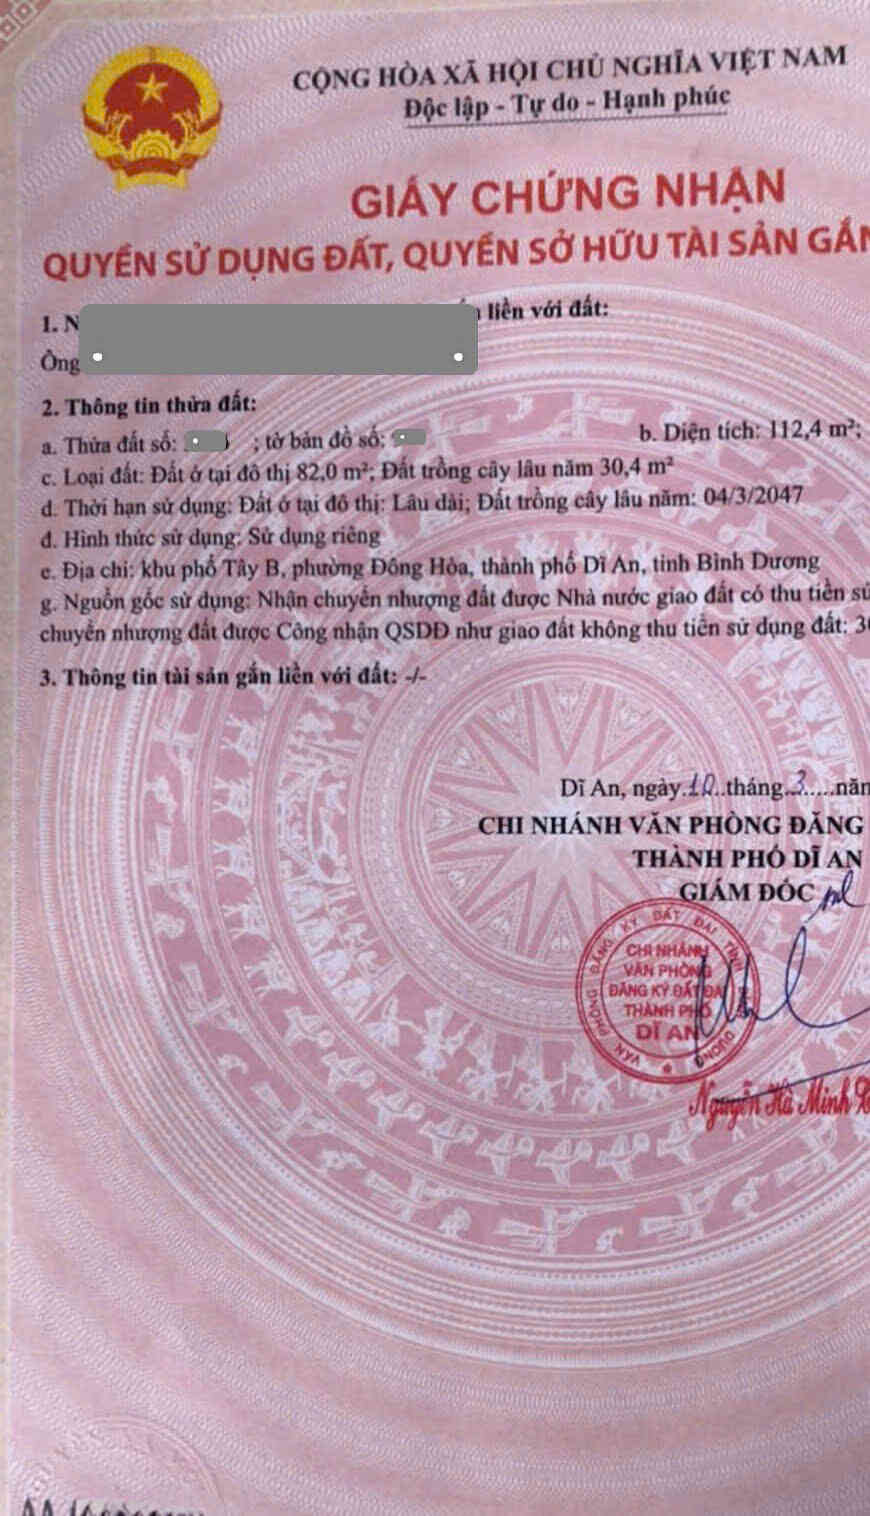 CỘNG HÒA XÃ HỘI CHỦ NGHĨA VIỆT NAM
Độc lập - Tự do - Hạnh phúc
GIẤY CHỨNG NHẬN
QUYỀN SỬ DỤNG ĐẤT, QUYỀN SỞ HỮU TÀI SẢN GẮN
1. N liền với đất:
Ông
2. Thông tin thửa đất:
a. Thửa đất số: ; tờ bản đồ số: b. Diện tích: 112,4 m²;
c. Loại đất: Đất ở tại đô thị 82,0 m²; Đất trồng cây lâu năm 30,4 m²
d. Thời hạn sử dụng: Đất ở tại đô thị: Lâu dài; Đất trồng cây lâu năm: 04/3/2047
đ. Hình thức sử dụng: Sử dụng riêng
e. Địa chỉ: khu phố Tây B, phường Đông Hòa, thành phố Dĩ An, tỉnh Bình Dương
g. Nguồn gốc sử dụng: Nhận chuyển nhượng đất được Nhà nước giao đất có thu tiền sử
chuyển nhượng đất được Công nhận QSDĐ như giao đất không thu tiền sử dụng đất: 30
3. Thông tin tài sản gắn liền với đất: -/-
Dĩ An, ngày 10 tháng 3 năm
CHI NHÁNH VĂN PHÒNG ĐĂNG
THÀNH PHỐ DĨ AN
GIÁM ĐỐC
VĂN PHÒNG ĐĂNG KÝ ĐẤT ĐAI TỈNH DƯƠNG
CHI NHÁNH
VĂN PHÒNG
ĐĂNG KÝ ĐẤT ĐAI
THÀNH PHỐ
DĨ AN
Nguyễn Hà Minh